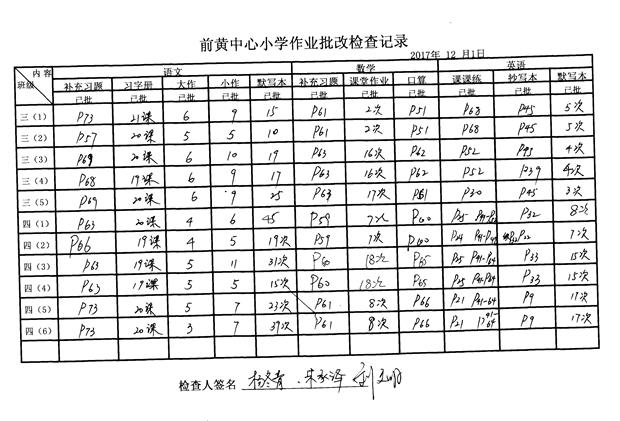 前黄中心小学作业批改检查记录
2017年 12 月1日
内容 语文 数学 英语
班级 补充习题 习字册 大作 小作 默写本 补充习题 课堂作业 口算 课课练 抄写本 默写本
已批 已批 已批 已批 已批 已批 已批 已批 已批 已批 已批
三（1） P73 21课 6 9 15 P61 2次 P51 P68 P45 5次
三（2） P57 20课 5 5 10 P61 2次 P51 P68 P45 5次
三（3） P69 20课 6 10 19 P63 16次 P62 P52 P45 4次
三（4） P68 19课 6 9 17 P63 16次 P62 P52 P39 4次
三（5） P69 20课 6 9 25 P63 17次 P61 P30 P45 3次
四（1） P63 20课 4 6 45 P59 7次 P60 P32 8次
四（2） P66 19课 4 5 19次 P59 7次 P60 P22 7次
四（3） P63 19课 5 11 31次 P60 18次 P65 P33 15次
四（4） P63 19课 5 5 15次 P60 18次 P65 P33 15次
四（5） P73 20课 5 7 23次 P61 8次 P66 P21 P9 17次
四（6） P73 20课 3 7 37次 P61 8次 P66 P21 P9 17次
检查人签名